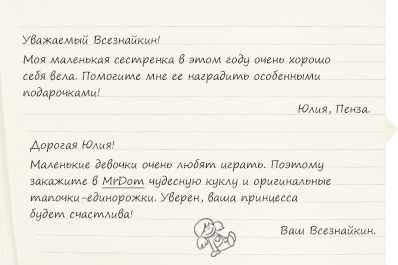 Уважаемый Всезнайкин!
Моя маленькая сестренка в этом году очень хорошо
себя вела. Помогите мне ее наградить особенными
подарочками!
Юлия, Пенза.
Дорогая Юлия!
Маленькие девочки очень любят играть. Поэтому
закажите в MrDom чудесную куклу и оригинальные
тапочки-единорожки. Уверен, ваша принцесса
будет счастлива!
Ваш Всезнайкин.